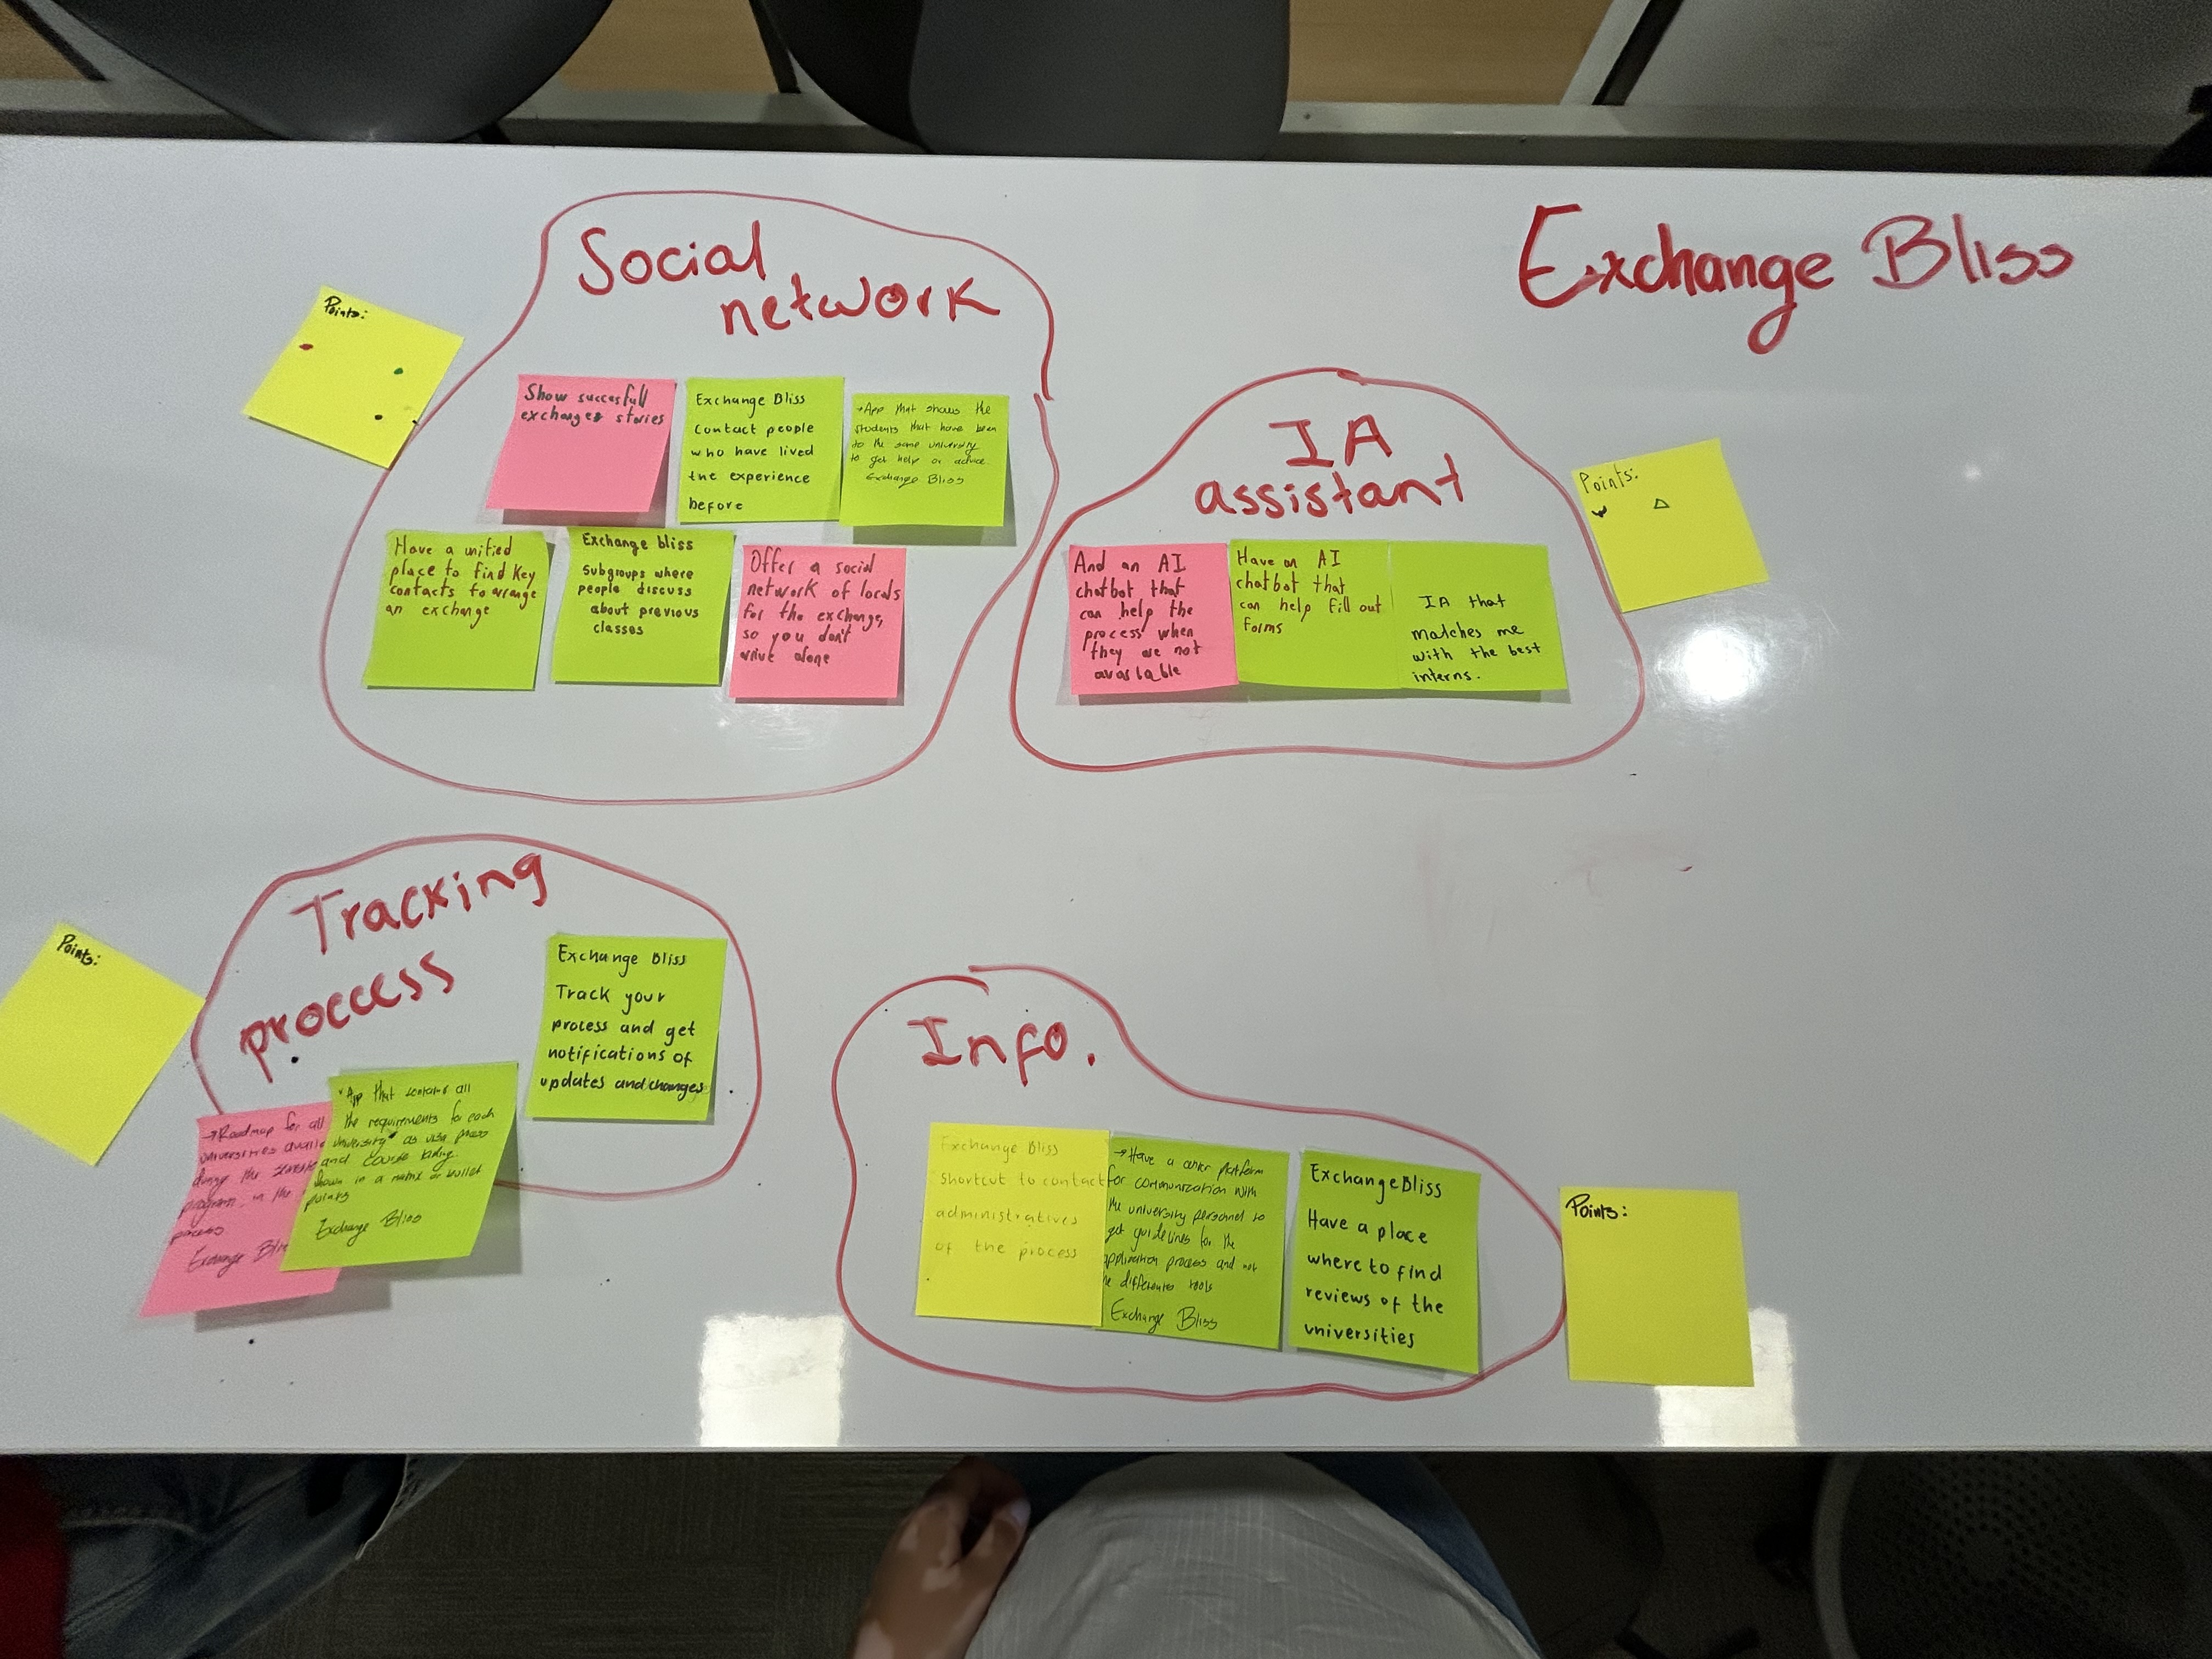 Exchange Bliss
Social
network
Points:
Show succesfull
exchanges stories
Exchange Bliss
Contact people
who have lived
the experience
before
→App that shows the
students that have been
to the same university
to get help or advice.
Exchange Bliss
Have a unified
place to find key
contacts to arrange
an exchange
Exchange bliss
Subgroups where
people discuss
about previous
classes
Offer a social
network of locals
for the exchange,
so you don't
arive alone
IA
assistant
Points:
And an AI
chatbot that
can help the
process when
they are not
available
Have an AI
chatbot that
can help fill out
forms
IA that
matches me
with the best
interns.
Tracking
proccess
Points:
Exchange Bliss
Track your
process and get
notifications of
updates and changes
→Roadmap for all
universities
the
program in the
process
Exchange
App that contains all
the requirements for each
university as visa process
and course taking.
shown in a or bullet
points
Exchange Bliss
Info.
Points:
Exchange Bliss
shortcut to contact
administratives
of the process
→Have a platform
for communication with
the university personnel to
get guidelines for the
application process and not
differentes tools
Exchange Bliss
Exchange Bliss
Have a place
where to find
reviews of the
universities